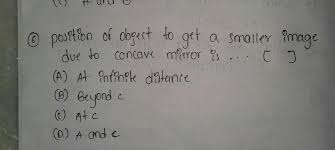 (C) A and B
⑥ position of object to get a smaller image
due to concave mirror is ... [ ]
(A) At infinite distance
(B) Beyond c
(C) At c
(D) A and c